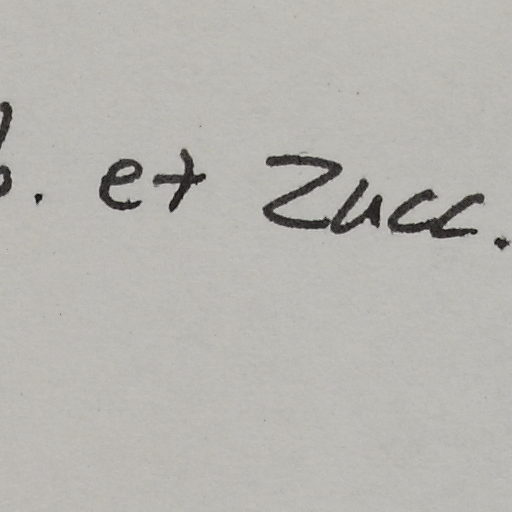 b. et Zucc.